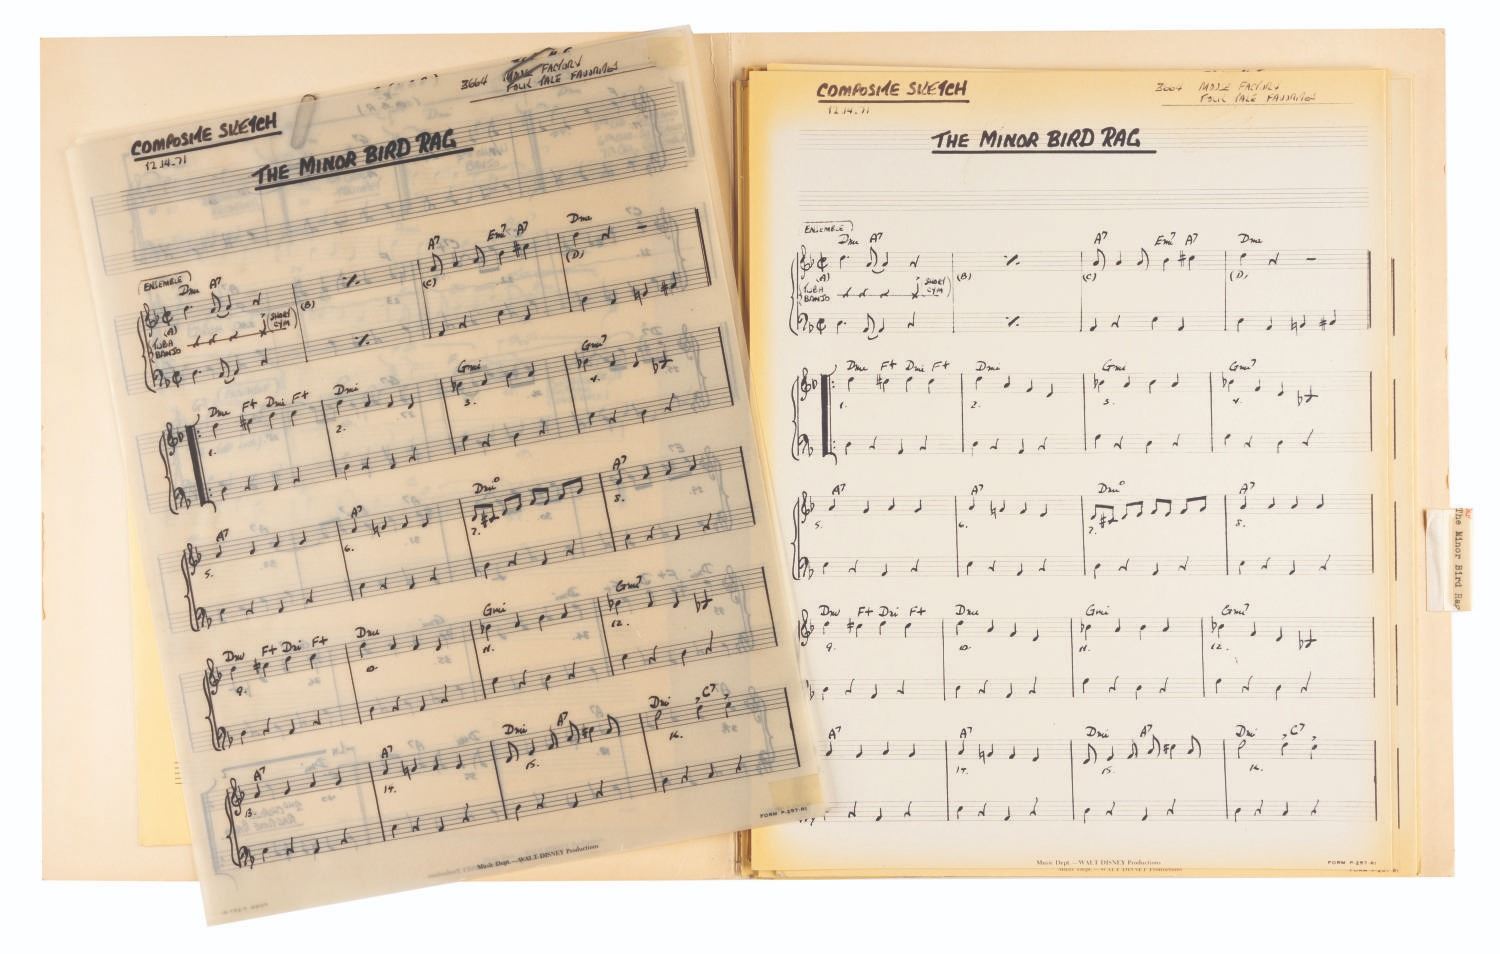 COMPOSITE SKETCH
12.14.71
3664 MOUSE FACTORY
FOLK TALE FAVORITES
THE MINOR BIRD RAG
ENSEMBLE
Dmi A7
A7 Emi7 A7
Dmi
(A)
(B)
(C)
(D)
TUBA
BANJO
SHORT
CYM
Dmi F+ Dmi F+
Dmi
Gmi
Gmi7
1.
2.
3.
4.
A7
A7
Dmi°
A7
5.
6.
7.
8.
Dmi F+ Dmi F+
Dmi
Gmi
Gmi7
9.
10.
11.
12.
A7
A7
Dmi A7
Dmi C7
13.
14.
15.
16.
Music Dept.—WALT DISNEY Productions
FORM P-297-R1
COMPOSITE SKETCH
12.14.71
3664 MOUSE FACTORY
FOLK TALE FAVORITES
THE MINOR BIRD RAG
ENSEMBLE
Dmi A7
A7 Emi7 A7
Dmi
(A)
(B)
(C)
(D)
TUBA
BANJO
SHORT
CYM
Dmi F+ Dmi F+
Dmi
Gmi
Gmi7
1.
2.
3.
4.
A7
A7
Dmi°
A7
5.
6.
7.
8.
Dmi F+ Dmi F+
Dmi
Gmi
Gmi7
9.
10.
11.
12.
A7
A7
Dmi A7
Dmi C7
14.
15.
16.
Music Dept.—WALT DISNEY Productions
FORM P-297-R1
Music Dept.—WALT DISNEY Productions
The Minor Bird Rag